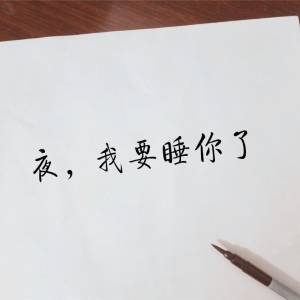 夜，我要睡你了